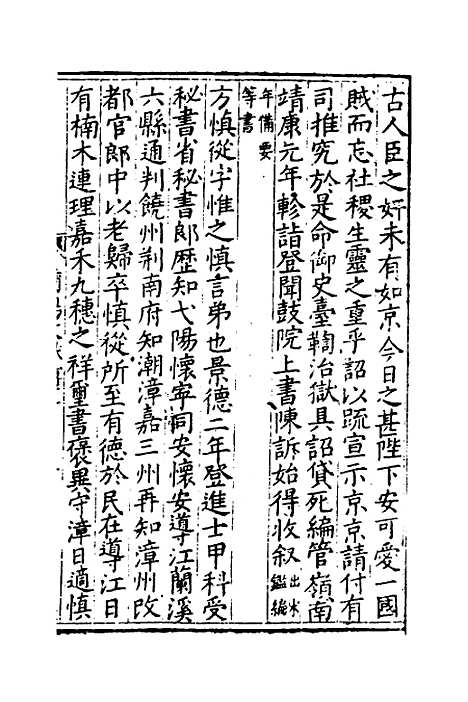 古人臣之奸未有如京今日之甚陛下安可愛一國
賊而忘社稷生靈之重乎詔以疏宣示京京請付有
司推究於是命御史臺鞫治獄具詔貸死編管嶺南
靖康元年軫詣登聞鼓院上書陳訴始得收叙出宋鑑編
年備要等書
方慎從字惟之慎言弟也景德二年登進士甲科受
秘書省秘書郎歷知弋陽懷寧同安懷安導江蘭溪
六縣通判饒州荆南府知潮漳嘉三州再知漳州改
都官郎中以老歸卒慎從所至有德於民在導江日
有楠木連理嘉禾九穗之祥璽書褒異守漳日適慎